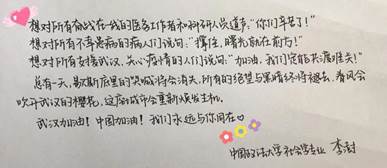 想对所有奋战在一线的医务工作者和科研人员道声：“你们辛苦了！”
想对所有不幸患病的病人们说句：“撑住，曙光就在前方！”
想对所有支援武汉、关心疫情的人们说句：“加油，我们定能共渡难关！”
总有一天，歇斯底里的哭喊将会消失，所有的绝望与黑暗终将褪去，春风会
吹开武汉的樱花，这座城市会重新焕发生机。
武汉加油！中国加油！我们永远与你同在
中国政法大学社会学专业 李